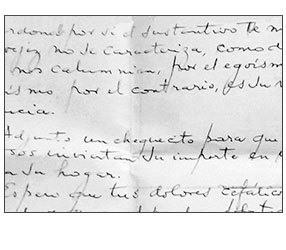 perdones por si el sustantivo te m
vejez no se caracteriza, como d
nos calumnian, por el egoism
ismo, por el contrario, es su r
ncia.
Adjunto un chequecito para que
sos inviertan su importe en
a su hogar.
Espero que tus dolores cefálicos